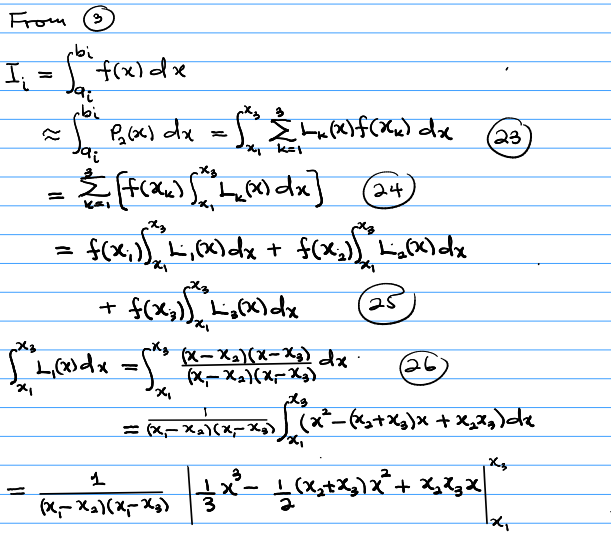 From ③
I_i = ∫_{a_i}^{b_i} f(x) dx
≈ ∫_{a_i}^{b_i} P_2(x) dx = ∫_{x_1}^{x_3} Σ_{k=1}^{3} L_k(x) f(x_k) dx (23)
= Σ_{k=1}^{3} [f(x_k) ∫_{x_1}^{x_3} L_k(x) dx] (24)
= f(x_1) ∫_{x_1}^{x_3} L_1(x) dx + f(x_2) ∫_{x_1}^{x_3} L_2(x) dx
+ f(x_3) ∫_{x_1}^{x_3} L_3(x) dx (25)
∫_{x_1}^{x_3} L_1(x) dx = ∫_{x_1}^{x_3} (x-x_2)(x-x_3)/(x_1-x_2)(x_1-x_3) dx (26)
= 1/(x_1-x_2)(x_1-x_3) ∫_{x_1}^{x_3} (x^2-(x_2+x_3)x + x_2x_3) dx
= 1/(x_1-x_2)(x_1-x_3) | 1/3 x^3 - 1/2 (x_2+x_3) x^2 + x_2x_3x |_{x_1}^{x_3}